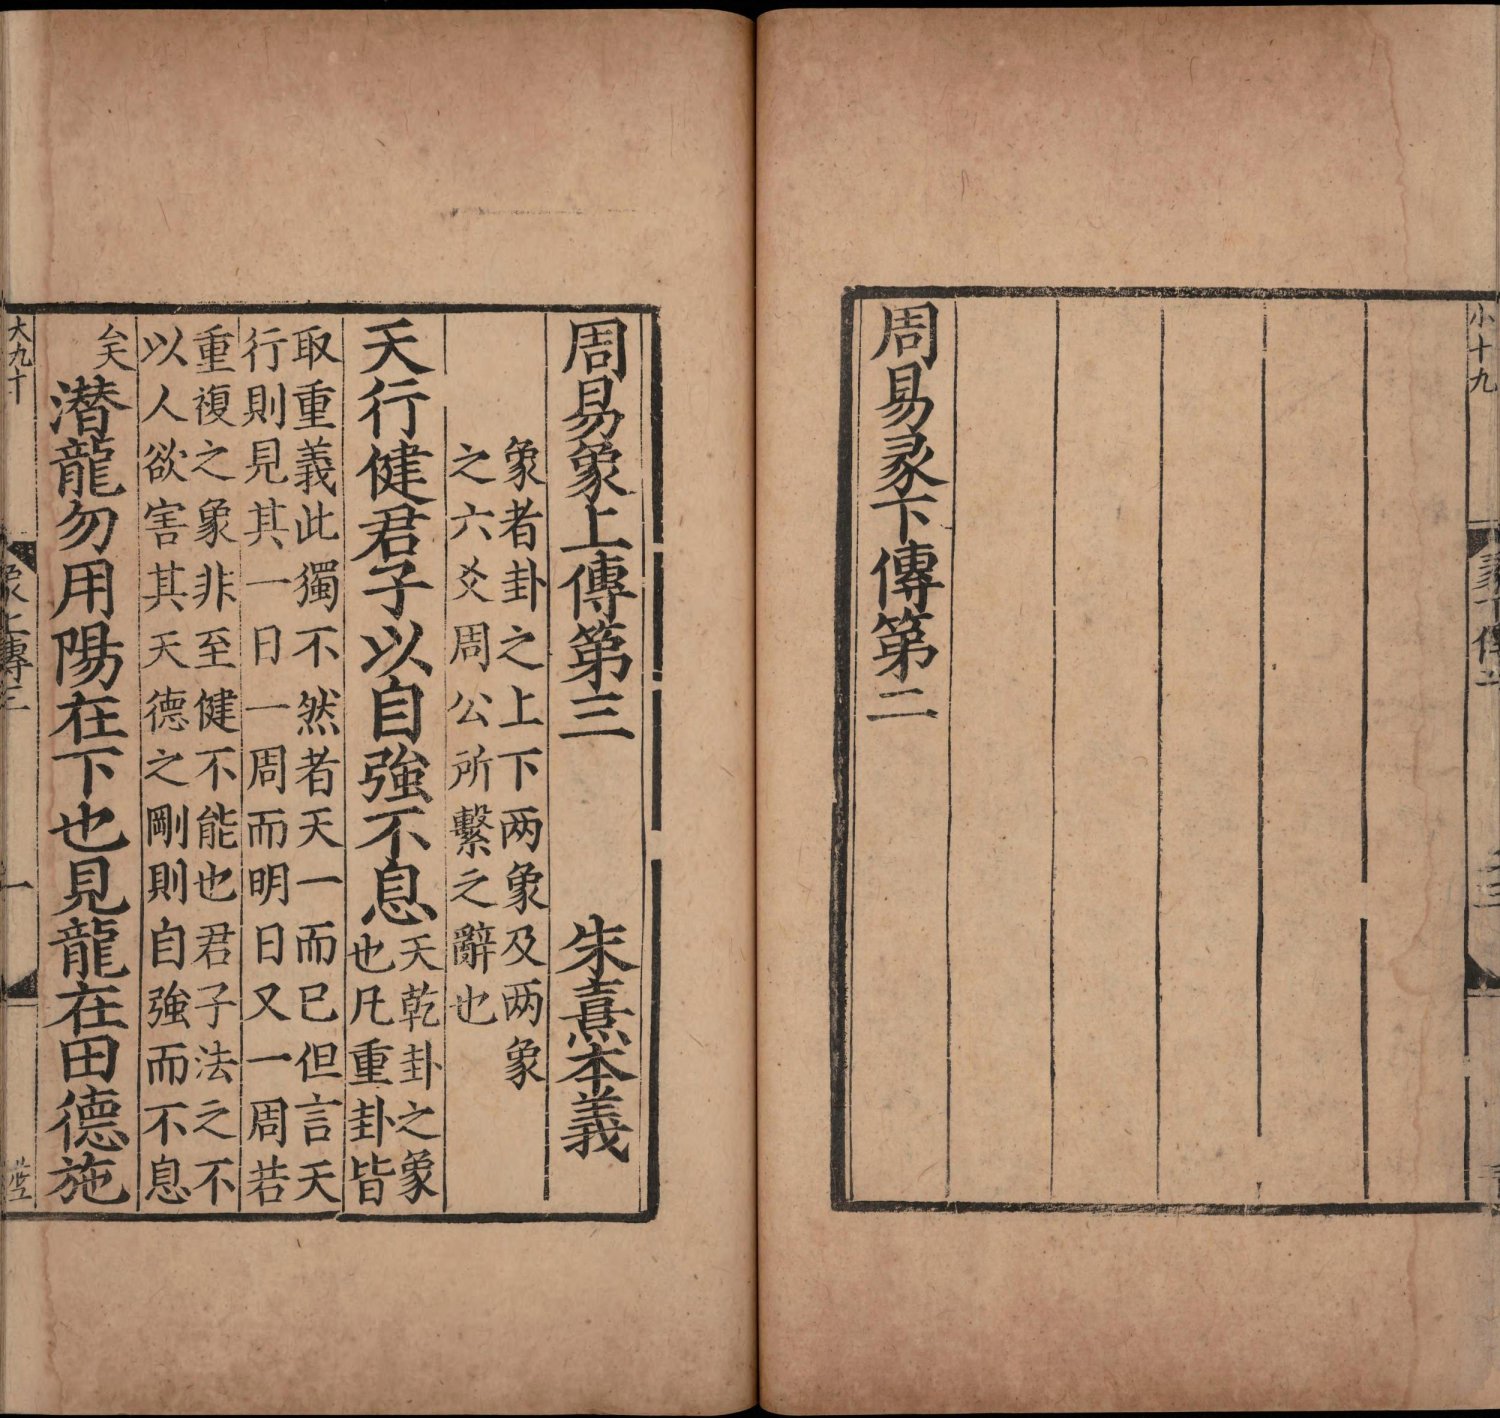 小十九
周易彖下傳第二
周易象上傳第三　朱熹本義
象者卦之上下两象及两象
之六爻周公所繫之辭也
天行健君子以自強不息
天乾卦之象
也凡重卦皆
取重義此獨不然者天一而已但言天
行則見其一日一周而明日又一周若
重複之象非至健不能也君子法之不
以人欲害其天德之剛則自強而不息
矣
潜龍勿用陽在下也見龍在田德施
大九十
象上傳三
一